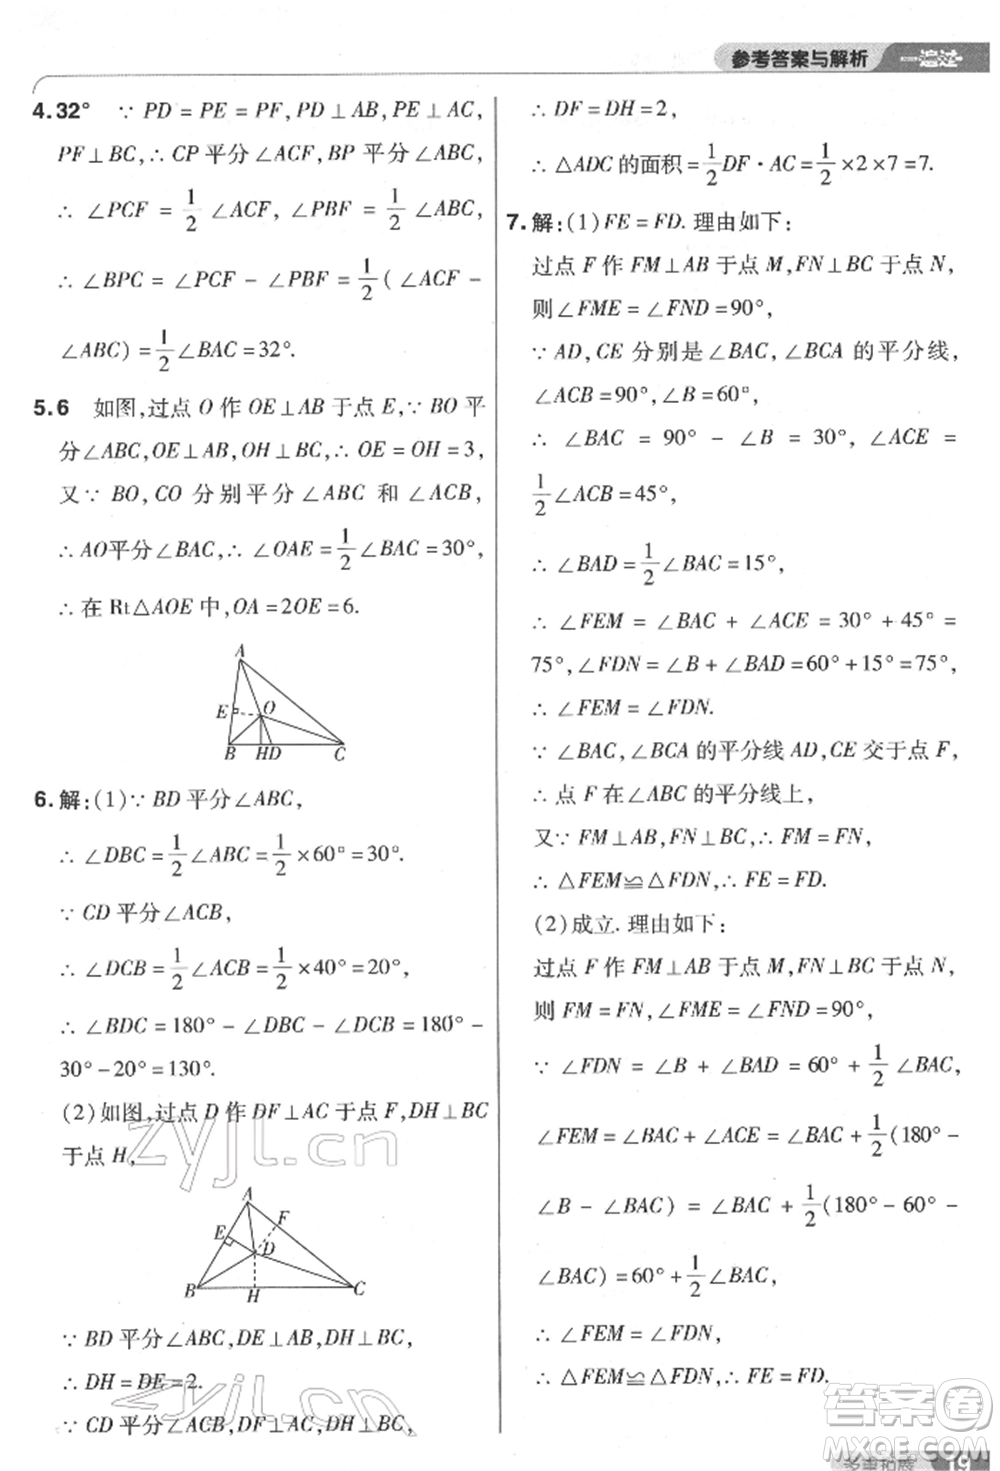 参考答案与解析 一遍过
4.32° ∵ PD = PE = PF, PD⊥AB, PE⊥AC,
PF⊥BC, ∴ CP 平分∠ACF, BP 平分∠ABC,
∴ ∠PCF = 1/2 ∠ACF, ∠PBF = 1/2 ∠ABC,
∴ ∠BPC = ∠PCF - ∠PBF = 1/2 ( ∠ACF -
∠ABC) = 1/2 ∠BAC = 32°.
5.6 如图,过点 O 作 OE⊥AB 于点 E, ∵ BO 平
分∠ABC, OE⊥AB, OH⊥BC, ∴ OE = OH = 3,
又∵ BO, CO 分别平分∠ABC 和 ∠ACB,
∴ AO平分∠BAC, ∴ ∠OAE = 1/2 ∠BAC = 30°,
∴ 在 Rt△AOE 中, OA = 2OE = 6.
A
E O
B HD C
6.解:(1)∵ BD 平分∠ABC,
∴ ∠DBC = 1/2 ∠ABC = 1/2 ×60° = 30°.
∵ CD 平分∠ACB,
∴ ∠DCB = 1/2 ∠ACB = 1/2 ×40° = 20°,
∴ ∠BDC = 180° - ∠DBC - ∠DCB = 180° -
30° - 20° = 130°.
(2)如图,过点 D 作 DF⊥AC 于点 F, DH⊥BC
于点 H,
A
F
E
D
B H C
∵ BD 平分∠ABC, DE⊥AB, DH⊥BC,
∴ DH = DE = 2.
∵ CD 平分∠ACB, DF⊥AC, DH⊥BC,
∴ DF = DH = 2,
∴ △ADC 的面积 = 1/2 DF·AC = 1/2 ×2×7 = 7.
7.解:(1)FE = FD. 理由如下:
过点 F 作 FM⊥AB 于点 M, FN⊥BC 于点 N,
则∠FME = ∠FND = 90°,
∵ AD, CE 分别是∠BAC, ∠BCA 的平分线,
∠ACB = 90°, ∠B = 60°,
∴ ∠BAC = 90° - ∠B = 30°, ∠ACE =
1/2 ∠ACB = 45°,
∴ ∠BAD = 1/2 ∠BAC = 15°,
∴ ∠FEM = ∠BAC + ∠ACE = 30° + 45° =
75°, ∠FDN = ∠B + ∠BAD = 60° + 15° = 75°,
∴ ∠FEM = ∠FDN.
∵ ∠BAC, ∠BCA 的平分线 AD, CE 交于点 F,
∴ 点 F 在∠ABC 的平分线上,
又∵ FM⊥AB, FN⊥BC, ∴ FM = FN,
∴ △FEM≌△FDN, ∴ FE = FD.
(2)成立. 理由如下:
过点 F 作 FM⊥AB 于点 M, FN⊥BC 于点 N,
则 FM = FN, ∠FME = ∠FND = 90°,
∵ ∠FDN = ∠B + ∠BAD = 60° + 1/2 ∠BAC,
∠FEM = ∠BAC + ∠ACE = ∠BAC + 1/2 (180° -
∠B - ∠BAC) = ∠BAC + 1/2 (180° - 60° -
∠BAC) = 60° + 1/2 ∠BAC,
∴ ∠FEM = ∠FDN,
∴ △FEM≌△FDN, ∴ FE = FD.
zyjl.cn
zyjl.cn
答案卷
MXQE.COM
19